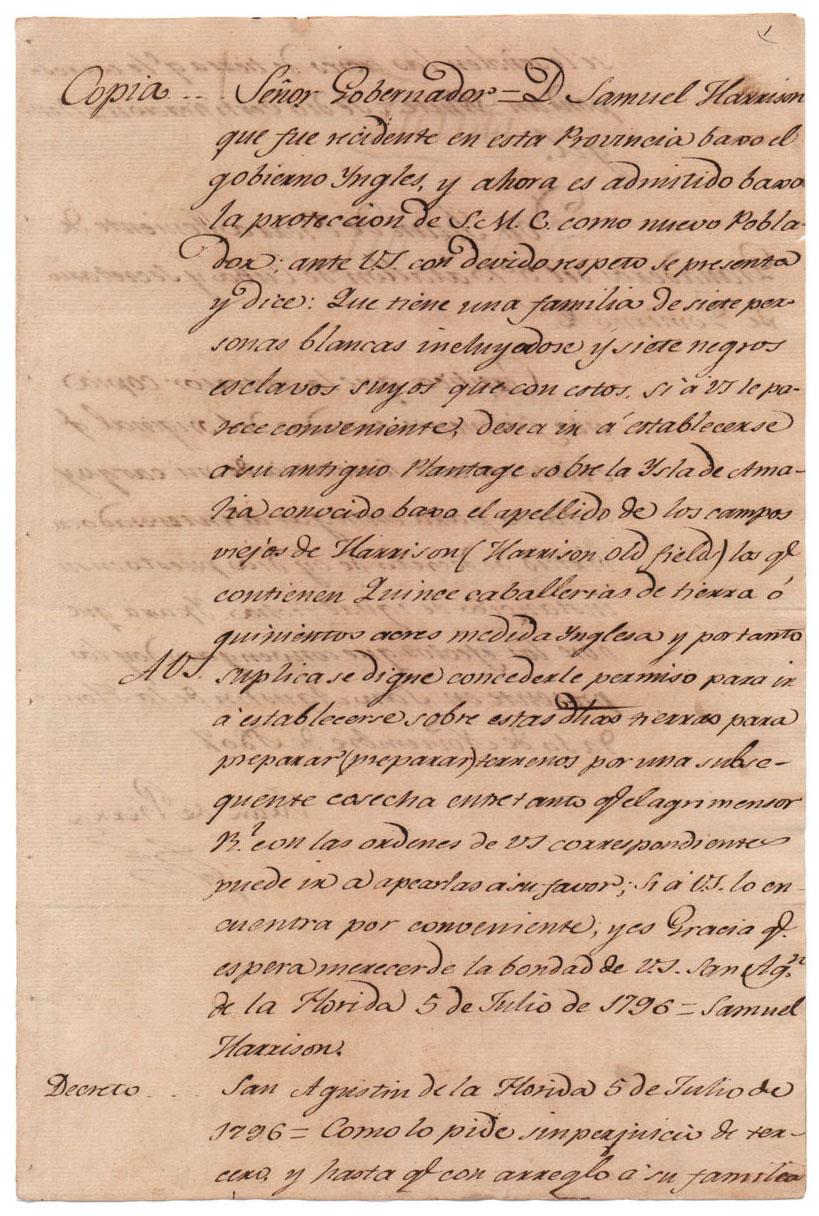 Copia... Señor Gobernador = D Samuel Harrison
que fue recidente en esta Provincia baxo el
gobierno Yngles, y ahora es admitido baxo
la proteccion de S. M. C. como nuevo Pobla-
dor; ante VS. con devido respeto se presenta
y dice: Que tiene una familia de siete per-
sonas blancas incluyedose y siete negros
esclavos suyos que con estos, si á VS le pa-
rece conveniente, desea ir á establecerse
a su antiguo Plantage sobre la Ysla de Ama-
lia conocido baxo el apellido de los campos
viejos de Harrison (Harrison old fields) los qe
contienen Quince caballerias de tierra ó
quinientos acres medida Ynglesa y por tanto
A VS. suplica se digne concederle permiso para ir
á establecerse sobre estas dhas tierras para
preparar (preparar) terrenos por una subse-
quente cosecha entretanto qe el agrimensor
Rl. con las ordenes de VS correspondientes
puede ir a apearlas a su favor; si á VS. lo en-
cuentra por conveniente, y es Gracia qe.
espera merecer de la bondad de VS. San Agn.
de la Florida 5 de Julio de 1796 = Samuel
Harrison.
Decreto... San Agustin de la Florida 5 de Julio de
1796 = Como lo pide sin perjuicio de ter-
cero, y hasta qe con arreglo á su familia